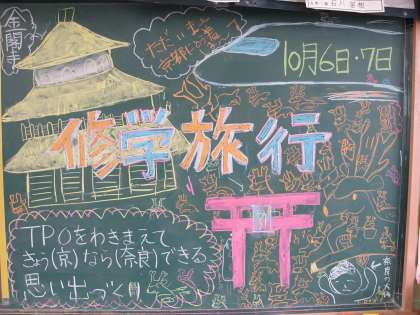 金閣寺
ただいまより
10月6日・7日
修学旅行
TPOをわきまえて
きょう(京)なら(奈良)できる
思い出づくり
奈良の大仏